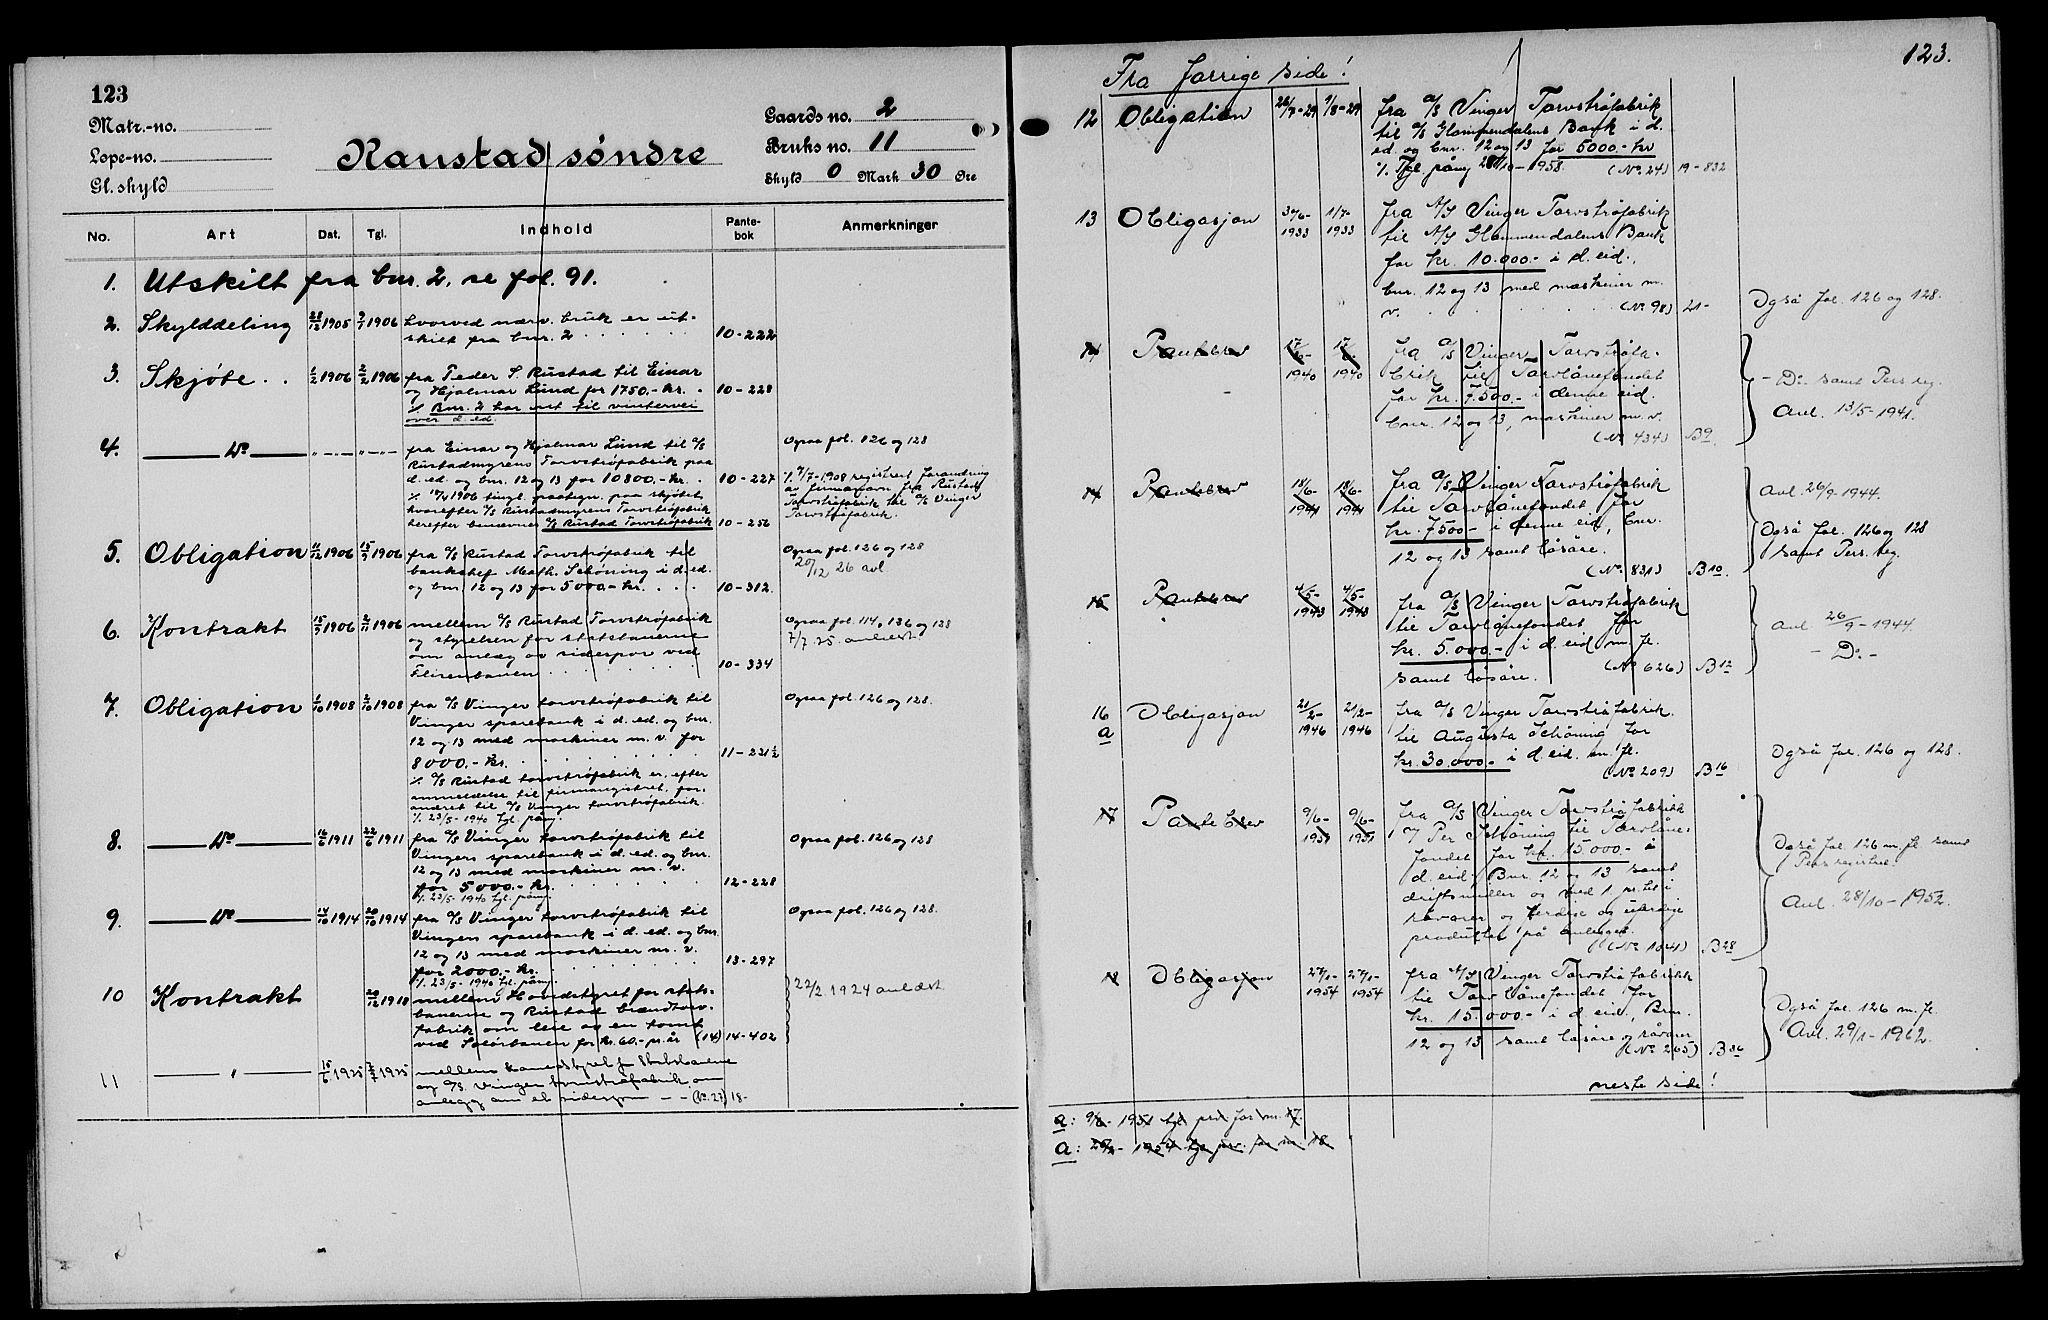 123
Matr.-no.
Lope-no.
Gl. skyld
Raustad söndre
Gaards no. 2
Bruks no. 11
Skyld 0 Mark 30 Øre
No. Art Dat. Tgl. Indhold Pante-bok Anmerkninger
1. Utskilt fra bnr. 2, se fol. 91.
2. Skylddeling 28/12 1905 2/1 1906 hvorved nærv. bruk er ut-
skilt fra bnr. 2 10-222
3. Skjöte . . 1/2 1906 2/2 1906 fra Peder S. Rustad til Einar
og Hjalmar Lund for 1750.- kr. 10-228
% Bnr. 2 har ret til vintervei
over d. ed.
4. Do " - - - " - " - fra Einar og Hjalmar Lund til a/s
Rustadmyrens Torvströfabrik paa
d. ed. og bnr. 12 og 13 for 10800.- kr. 10-227
1906 tingl. paategn. paa skjötet
hvorefter a/s Rustadmyrens Torvströfabrik
herefter benævnes a/s Rustad Torvströfabrik 10-256
Ogsaa fol. 126 og 128
% 9/7-1908 registrert forandring
av firmanavn fra Rustad
Torvströfabrik til a/s Vinger
Torvströfabrik.
5. Obligation 11/12 1906 15/9 1906 fra a/s Rustad Torvströfabrik til
bankchef Math. Schöning i d. ed.
og bnr. 12 og 13 for 5000.- kr. . . . 10-312.
Ogsaa fol. 126 og 128
20/12 26 avl.
6. Kontrakt 15/9 1906 2/11 1906 mellem a/s Rustad Torvströfabrik
og styrelsen for statsbanerne
om anlæg av sidespor ved
Flisenbanen 10-334
Ogsaa fol. 114, 136 og 128
7/7. 25. avlæst.
7. Obligation 1/10 1908 2/10 1908 fra a/s Vinger torvströfabrik til
Vinger sparebank i d. ed. og bnr.
12 og 13 med maskiner m. v. for
8000.- kr. 11-231½
% a/s Rustad torvströfabrik er, efter
anmeldelse til firmaregistret, for-
andret til a/s Vinger torvströfabrik.
% 23/5-1940 tgl. påny.
Ogsaa fol. 126 og 128.
8. Do 16/6 1911 22/6 1911 fra a/s Vinger torvströfabrik til
Vingers sparebank i d. ed. og bnr.
12 og 13 med maskiner m. v.
for 5000.- kr. 12-228
% 23/5-1940 tgl. påny.
Ogsaa fol. 126 og 128
9. Do 14/10 1914 20/10 1914 fra a/s Vinger torvströfabrik til
Vingers sparebank i d. ed. og bnr.
12 og 13 med maskiner m. v.
for 2000.- kr. 13-297
% 23/5-1940 tgl. påny.
Ogsaa fol. 126 og 128.
10 Kontrakt 20/12 1918 mellem Hovedstyret for stats-
banerne og Rustad brændtorv-
fabrik om leie av en tomt
ved Solörbanen for kr. 60.- pr. år (14) 14-402
22/2 1924 avlæst
11 " 15/6 1925 1925 mellem Hovedstyret for Statsbanerne
og a/s Vinger torvströfabrik om
anlegg av et sidespor - - (No. 27) 18-
123.
Fra forrige side!
12 Obligation 26/7-29 1/8-29 fra a/s Vinger Torvströfabrik
til a/s Glommendalens Bank i d.
ed. og bnr. 12 og 13 for 5000.- kr
%. Tgl. påny 28/10-1958. (No. 24) 19-832
13 Obligasjon 30/6-1933 1/7-1933 fra A/S Vinger Torvströfabrik
til A/S Glommendalens Bank
for kr. 10.000.- i d. eid.,
bnr. 12 og 13 med maskiner m.
v. (No 98) 21-
Også fol. 126 og 128.
14 Pantebrev 17/6-1940 17/6-1940 fra a/s Vinger Torvströfa-
brik til Torvlånefondet
for kr. 7.500.- i denne eid.
bnr. 12 og 13, maskiner m. v.
(No 434) B9.
- Do - samt Pers. reg.
Avl. 13/5-1941.
14 Pantebrev 18/6-1941 18/6-1941 fra a/s Vinger Torvströfabrik
til Torvlånefondet for
kr. 7500.- i denne eid, bnr.
12 og 13 samt lösöre.
(No. 831) B10.
Avl. 26/9-1944.
Også fol. 126 og 128
samt Pers. reg.
15 Pantebrev 4/5-1943 4/5-1943 fra a/s Vinger Torvströfabrik
til Torvlånefondet for
kr. 5.000.- i d. eid m. fl.
samt lösöre. (No 626) B12
Avl 26/9-1944.
- Do -
16 a Obligasjon 21/2-1946 21/2-1946 fra a/s Vinger Torvströfabrik.
til Augusta Schöning for
kr. 30.000.- i d. eid. m. fl.
(No 209) B16
Også fol. 126 og 128.
17 Pante brev 9/6-1951 9/6-1951 fra a/s Vinger Torvströfabrikk
v/ Per Schöning til Torvlåne-
fondet for kr. 15000.- i
d. eid. Bnr. 12 og 13 samt
driftsmidler og med 1. pr. let i
råvarer og ferdige og uferdige
produkter på anlegget.
(No 1041) B28
Også fol. 126 m. fl. samt
Pers registret.
Avl. 28/10-1952.
Obligasjon 1954 1954 fra A/S Vinger Torvströfabrikk
til Torvlånefondet for
kr. 15.000.- i d. eid, Bnr.
12 og 13 samt lösöre og råvarer
(No 265) B36
Også fol. 126 m. fl.
Avl. 29/1-1962.
neste side!
a: 9/6-1951 tgl prv. for nr. 17.
a: 1954 tgl prv. for nr. 18